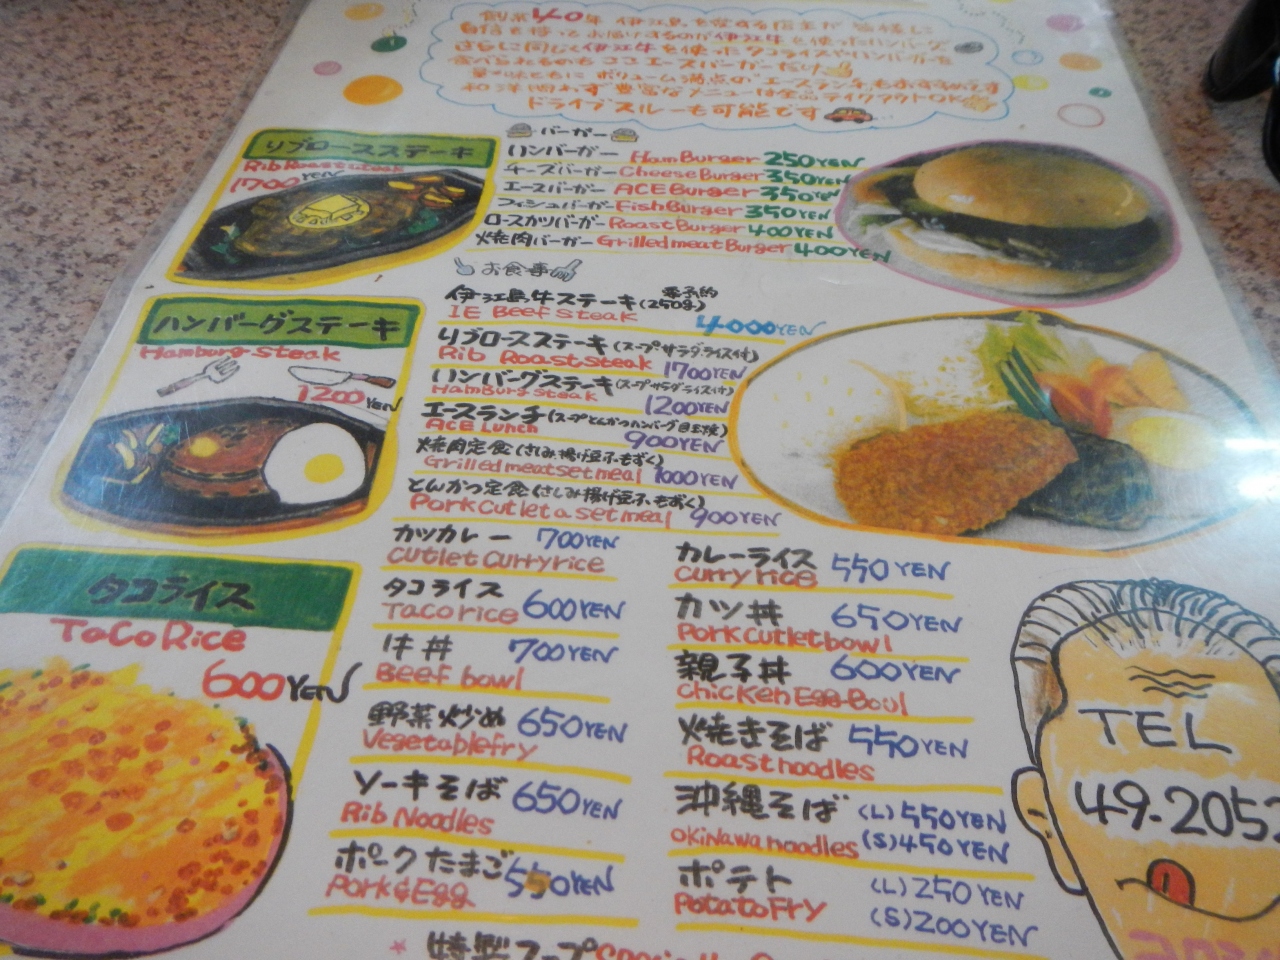 創業40年 伊江島を愛する店主が皆様に
自信を持ってお届けするのが伊江牛を使ったハンバーグ
さらに同じく伊江牛を使ったタコライスやハンバーガーも
食べられるのもココエースバーガーだけ
ボリューム満点のエースランチもおすすめです
和洋問わず豊富なメニューは全品テイクアウトOK
ドライブスルーも可能です
リブロースステーキ
Rib Roast steak
1700YEN
バーガー
ハンバーガー HamBurger 250YEN
チーズバーガー CheeseBurger 350YEN
エースバーガー ACE Burger 350YEN
フィッシュバーガー FishBurger 350YEN
ロースカツバーガー RoastBurger 400YEN
焼肉バーガー Grilled meat Burger 400YEN
お食事
要予約
伊江島牛ステーキ(250g)
IE Beef Steak 4000YEN
リブロースステーキ(スープサラダライス付)
Rib Roast steak 1700YEN
ハンバーグステーキ(スープサラダライス付)
Hamburg steak 1200YEN
エースランチ(スープとんかつハンバーグ目玉焼)
ACE Lunch 900YEN
焼肉定食(さしみ揚げ豆ふもずく)
Grilled meat set meal 1000YEN
とんかつ定食(さしみ揚げ豆ふもずく)
Pork cutlet a set meal 900YEN
ハンバーグステーキ
Hamburg steak
1200YEN
タコライス
Taco Rice
600YEN
カツカレー 700YEN
Cutlet curry rice
タコライス 600YEN
Taco rice
牛丼 700YEN
Beef bowl
野菜炒め 650YEN
Vegetable fry
ソーキそば 650YEN
Rib Noodles
ポークたまご 550YEN
Pork & Egg
カレーライス 550YEN
Curry rice
カツ丼 650YEN
Pork cutlet bowl
親子丼 600YEN
Chicken Egg Boul
焼きそば 550YEN
Roast noodles
沖縄そば (L) 550YEN
Okinawa noodles (S) 450YEN
ポテト (L) 250YEN
Potato Fry (S) 200YEN
TEL
49-205
特製スープ